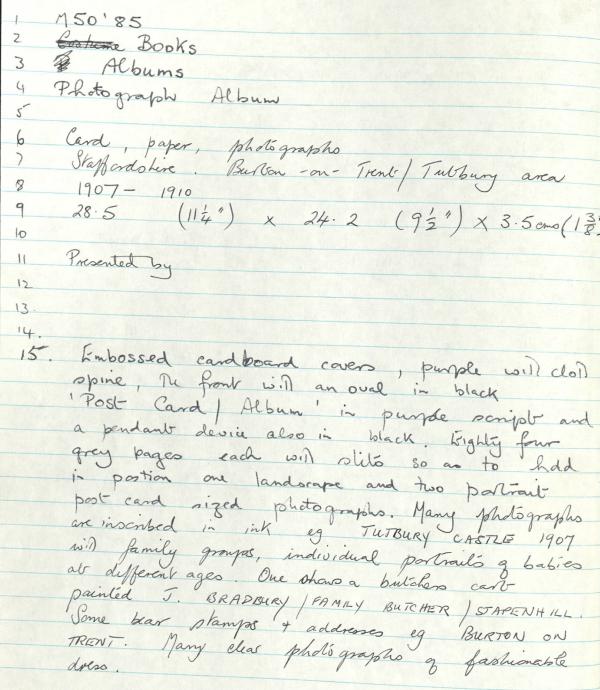 1 M50'85
2 Costume Books
3 Albums
4 Photograph Album
5
6 Card, paper, photographs
7 Staffordshire. Burton-on-Trent/Tutbury area
8 1907 - 1910
9 28.5 (11¼") x 24.2 (9½") x 3.5cms (1⅜
10
11 Presented by
12
13.
14.
15. Embossed cardboard covers, purple with cloth
spine, the front with an oval in black
'Post Card / Album' in purple script and
a pendant device also in black. Eighty four
grey pages each with slits so as to hold
in postion one landscape and two portrait
post card sized photographs. Many photographs
are inscribed in ink eg TUTBURY CASTLE 1907
with family groups, individual portraits of babies
at different ages. One shows a butchers cart
painted J. BRADBURY / FAMILY BUTCHER / STAPENHILL.
Some bear stamps + addresses eg BURTON ON
TRENT. Many clear photographs of fashionable
dress.